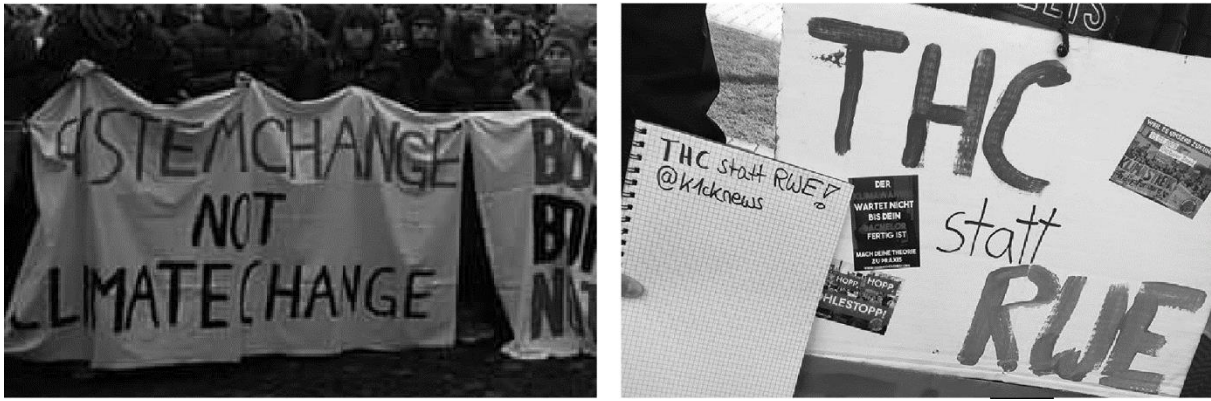 SYSTEMCHANGE
NOT
CLIMATECHANGE
THC
statt
RWE
THC statt RWE!
@k1cknews
DER
WARTET NICHT
BIS DEIN
BACHELOR
FERTIG IST
MACH DEINE THEORIE
ZU PRAXIS
HOPP,
HOPP,
HLESTOPP!